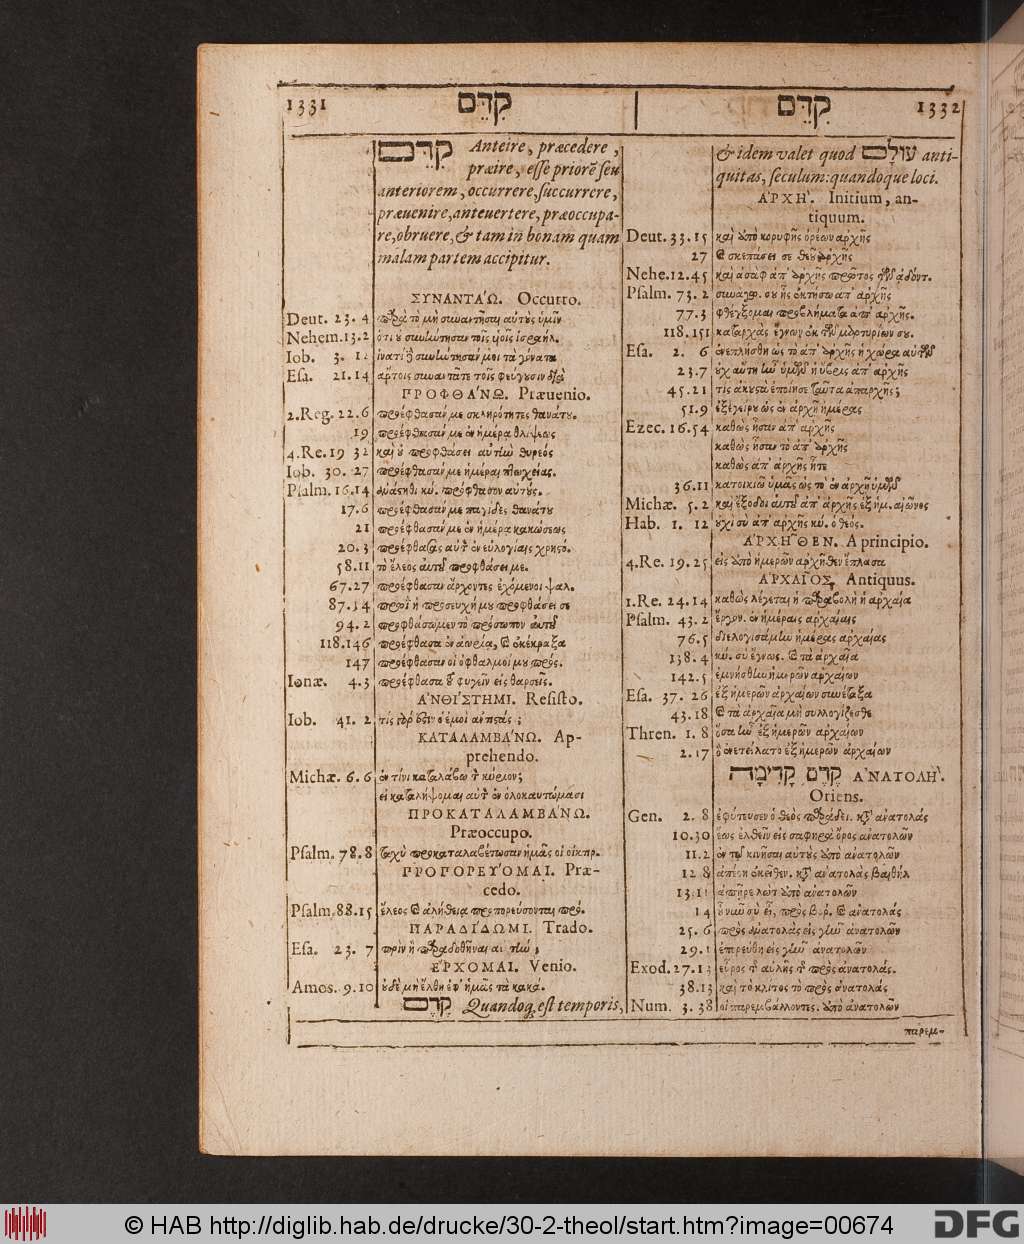 1331 קִדֵּם
קִדֵּם 1332
קִדֵּם Anteire, præcedere,
præire, esse priorē seu
anteriorem, occurrere, succurrere,
præuenire, anteuertere, præoccupa-
re, obruere, & tam in bonam quam
malam partem accipitur.
ΣΥΝΑΝΤΑ΄Ω. Occurro.
Deut. 23. 4 παρὰ τὸ μὴ συναντῆσαι αὐτοὺς ὑμῖν
Nehem. 13. 2 ὅτι οὐ συνήντησαν τοῖς υἱοῖς ἰσραήλ.
Iob. 3. 12 ἱνατί δὲ συνήντησάν μοι τὰ γόνατα
Esa. 21. 14 ἄρτοις συναντᾶτε τοῖς φεύγουσιν διὰ
ΠΡΟΦΘΑ΄ΝΩ. Præuenio.
2. Reg. 22. 6 προέφθασάν με σκληρότητες θανάτου.
19 προέφθασάν με ἐν ἡμέρᾳ θλίψεως
4. Re. 19 32 καὶ οὐ προφθάσει αὐτὴν θυρεός
Iob. 30. 27 προέφθασάν με ἡμέραι πτωχείας.
Psalm. 16. 14 ἀνάστηθι κύ. πρόφθασον αὐτούς.
17. 6 προέφθασάν με παγίδες θανάτου
21 προέφθασάν με ἐν ἡμέρᾳ κακώσεως
20. 3 προέφθασας αὐτὸν ἐν εὐλογίαις χρηστό.
58. 11 τὸ ἔλεος αὐτοῦ προφθάσει με.
67. 27 προέφθασαν ἄρχοντες ἐχόμενοι ψαλ.
87. 14 πρωῒ ἡ προσευχή μου προφθάσει σε
94. 2 προφθάσωμεν τὸ πρόσωπον αὐτοῦ
118. 146 προέφθασα ἐν ἀωρίᾳ, καὶ ἐκέκραξα
147 προέφθασαν οἱ ὀφθαλμοί μου πρός.
Ionæ. 4. 3 προέφθασα τοῦ φυγεῖν εἰς θαρσεῖς.
ἈΝΘΙ΄ΣΤΗΜΙ. Resisto.
Iob. 41. 2 τίς γάρ ἐστιν ὁ ἐμοὶ ἀντιστάς;
ΚΑΤΑΛΑΜΒΑ΄ΝΩ. Ap-
prehendo.
Michæ. 6. 6 ἐν τίνι καταλάβω τὸν κύριον;
εἰ καταλήψομαι αὐτὸν ἐν ὁλοκαυτώμασι
ΠΡΟΚΑΤΑΛΑΜΒΑ΄ΝΩ.
Præoccupo.
Psalm. 78. 8 ταχὺ προκαταλαβέτωσαν ἡμᾶς οἱ οἰκτιρ.
ΠΡΟΠΟΡΕΥ΄ΟΜΑΙ. Præ-
cedo.
Psalm. 88. 15 ἔλεος καὶ ἀλήθεια προπορεύσονται πρό.
ΠΑΡΑΔΙ΄ΔΩΜΙ. Trado.
Esa. 23. 7 πρὶν ἢ παραδοθῆναι αὐτήν;
ἜΡΧΟΜΑΙ. Venio.
Amos. 9. 10 οὐδὲ μὴ ἔλθῃ ἐφ᾽ ἡμᾶς τὰ κακά.
קֶדֶם Quandoq; est temporis,
& idem valet quod עוֹלָם anti-
quitas, seculum: quandoque loci.
ἈΡΧΗ΄. Initium, an-
tiquum.
Deut. 33. 15 καὶ ἀπὸ κορυφῆς ὀρέων ἀρχῆς
27 καὶ σκεπάσει σε θεοῦ ἀρχῆς
Nehe. 12. 45 καὶ ἀσὰφ ἀπ᾽ ἀρχῆς πρῶτος τῶν ᾀδόντ.
Psalm. 73. 2 συναγω. σου ἧς ἐκτήσω ἀπ᾽ ἀρχῆς
77. 3 φθέγξομαι προβλήματα ἀπ᾽ ἀρχῆς.
118. 151 καταρχὰς ἔγνων ἐκ τῶν μαρτυρίων σου.
Esa. 2. 6 ἐνεπλήσθη ὡς τὸ ἀπ᾽ ἀρχῆς ἡ χώρα αὐτῶν
23. 7 οὐχ αὕτη ἦν ὑμῶν ἡ ὕβρις ἀπ᾽ ἀρχῆς
45. 21 τίς ἀκουστὰ ἐποίησε ταῦτα ἀπαρχῆς;
51. 9 ἐξεγείρου ὡς ἐν ἀρχῇ ἡμέρας
Ezec. 16. 54 καθὼς ἦσαν ἀπ᾽ ἀρχῆς
καθὼς ἦσαν τὸ ἀπ᾽ ἀρχῆς
καθὼς ἀπ᾽ ἀρχῆς ἦτε
36. 11 κατοικιῶ ὑμᾶς ὡς τὸ ἐν ἀρχῇ ὑμῶν
Michæ. 5. 2 καὶ ἔξοδοι αὐτοῦ ἀπ᾽ ἀρχῆς ἐξ ἡμ. αἰῶνος
Hab. 1. 12 οὐχὶ σὺ ἀπ᾽ ἀρχῆς κύ. ὁ θεός.
ἈΡΧΗ͂ΘΕΝ. A principio.
4. Re. 19. 25 εἰς ἀπὸ ἡμερῶν ἀρχῆθεν ἔπλασα
ἈΡΧΑΙ͂ΟΣ, Antiquus.
1. Re. 24. 14 καθὼς λέγεται ἡ παραβολὴ ἡ ἀρχαία
Psalm. 43. 2 ἔργον. ἐν ἡμέραις ἀρχαίαις
76. 5 διελογισάμην ἡμέρας ἀρχαίας
138. 4 κύ. σὺ ἔγνως. καὶ τὰ ἀρχαῖα
142. 5 ἐμνήσθην ἡμερῶν ἀρχαίων
Esa. 37. 26 ἐξ ἡμερῶν ἀρχαίων συνέταξα
43. 18 καὶ τὰ ἀρχαῖα μὴ συλλογίζεσθε
Thren. 1. 8 ὅσα ἦν ἐξ ἡμερῶν ἀρχαίων
2. 17 ὃ ἐνετείλατο ἐξ ἡμερῶν ἀρχαίων
קֶדֶם קָדִימָה ἈΝΑΤΟΛΗ΄.
Oriens.
Gen. 2. 8 ἐφύτευσεν ὁ θεὸς παράδει. κατὰ ἀνατολάς
10. 30 ἕως ἐλθεῖν εἰς σαφηρὰ ὄρος ἀνατολῶν
11. 2 ἐν τῷ κινῆσαι αὐτοὺς ἀπὸ ἀνατολῶν
12 8 ἀπέστη ἐκεῖθεν. κατὰ ἀνατολὰς βαιθήλ
13. 11 ἀπῆρε λὼτ ἀπὸ ἀνατολῶν
14 οὗ νῦν σὺ εἶ, πρὸς βορ. καὶ ἀνατολάς
25. 6 πρὸς ἀνατολὰς εἰς γῆν ἀνατολῶν
29. 1 ἐπορεύθη εἰς γῆν ἀνατολῶν
Exod. 27. 13 εὖρος τῆς αὐλῆς τὸ πρὸς ἀνατολάς.
38. 13 καὶ τὸ κλίτος τὸ πρὸς ἀνατολάς
Num. 3. 38 οἱ παρεμβάλλοντες. ἀπὸ ἀνατολῶν
παρεμ-
© HAB http://diglib.hab.de/drucke/30-2-theol/start.htm?image=00674
DFG